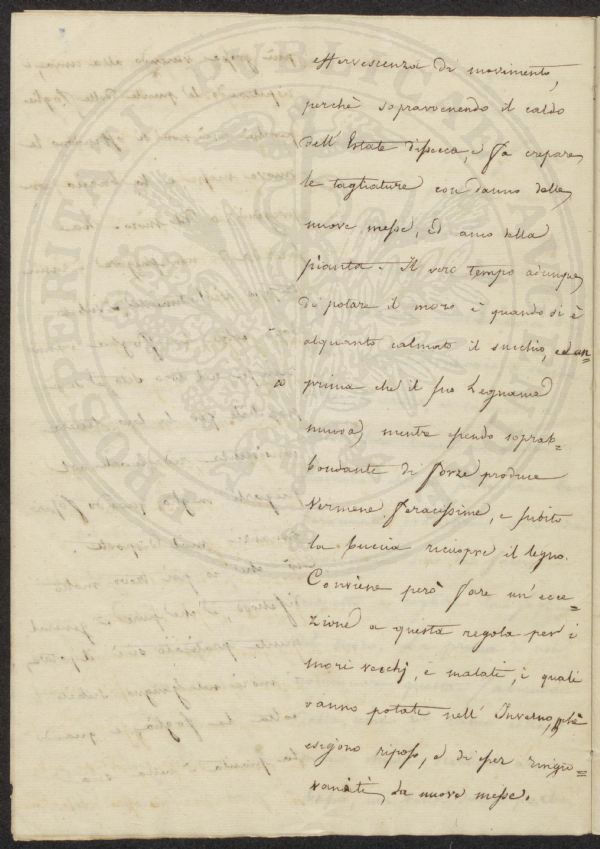 effervescenza di movimento,
perchè sopravvenendo il caldo
dell' Estate dissecca, e fa crepare
le tagliature con danno delle
nuove messe, ed anco della
pianta. Il vero tempo adunque
di potare il moro è quando si è
alquanto calmato il succhio, ed an=
prima che il suo Legname
nuovo) mentre essendo soprab=
bondante di forze produce
Vermene feracissime, e subito
la buccia ricuopre il legno.
Conviene però fare un' ecce=
zione a questa regola per i
mori vecchj, e malati, i quali
vanno potati nell' Inverno, pchè
esigono riposo, e di esser ringio=
vaniti da nuove messe.